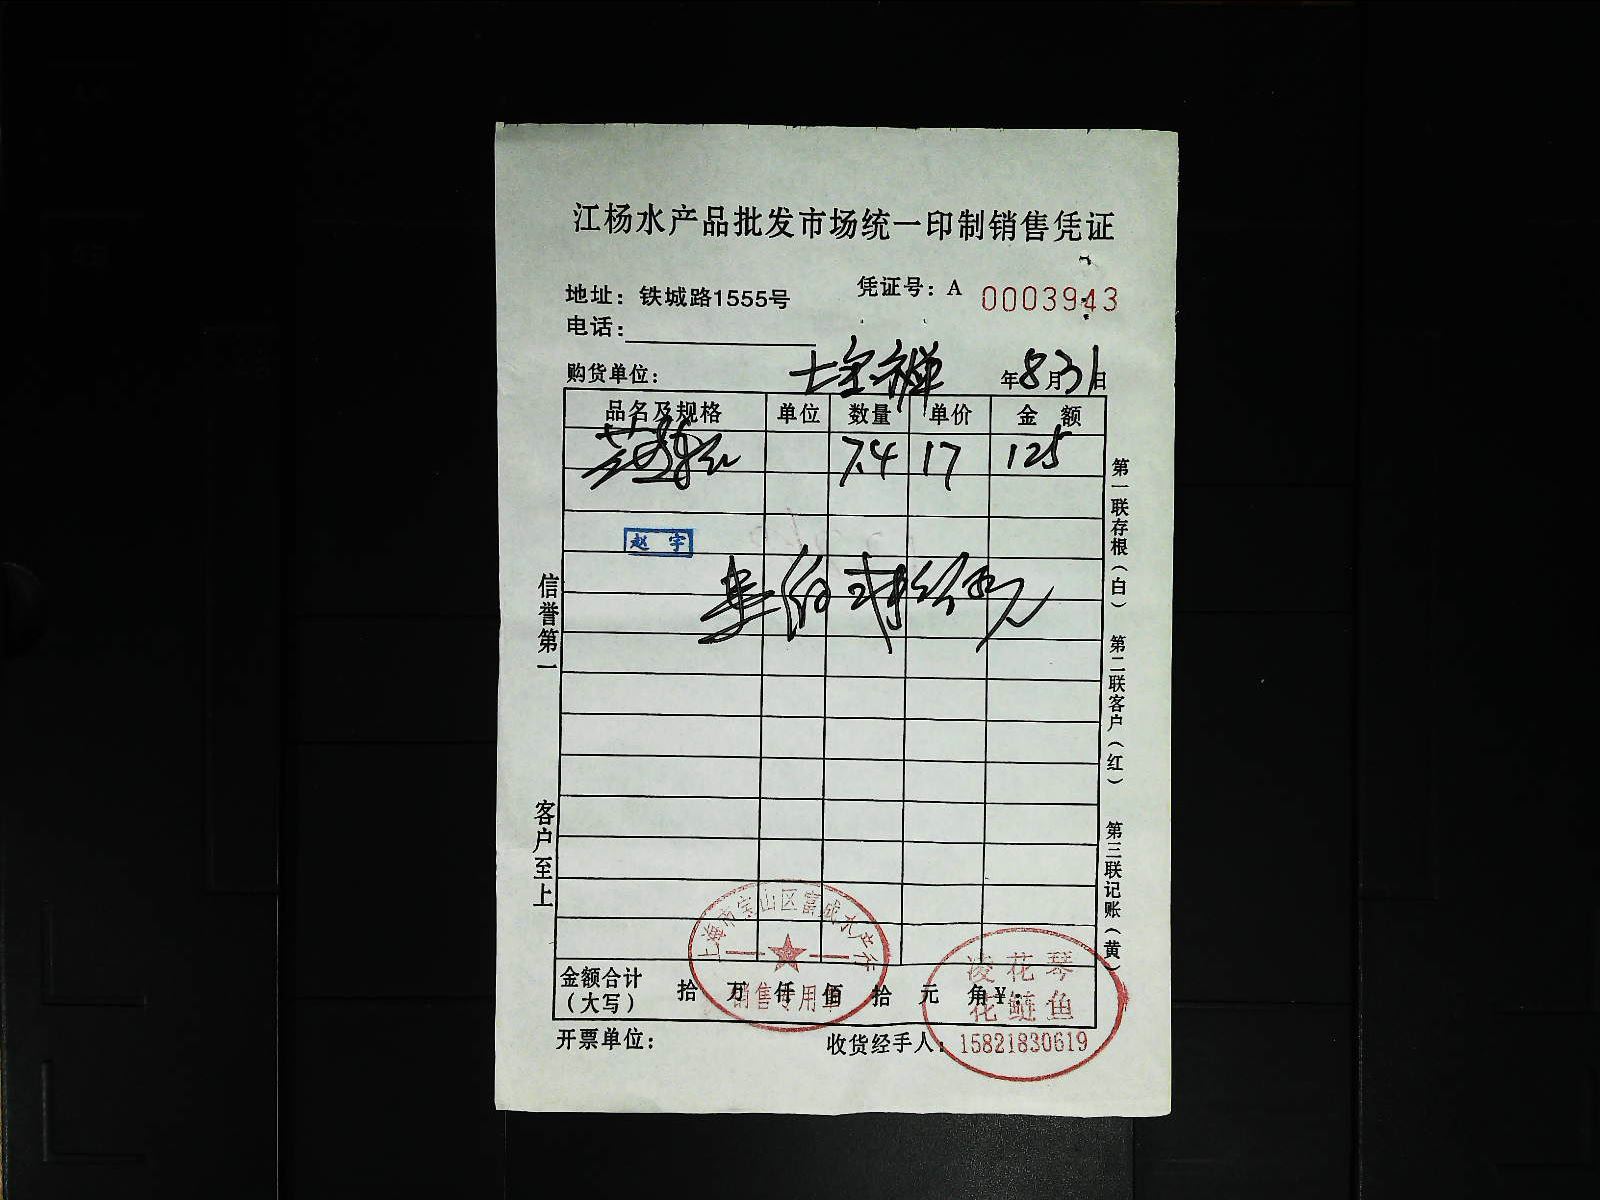 江杨水产品批发市场统一印制销售凭证
地址：铁城路1555号
凭证号：A 0003943
电话：
购货单位： 年8月31日
品名及规格 单位 数量 单价 金额
7.4 17 125
赵宇
信誉第一
客户至上
第一联存根（白）
第二联客户（红）
第三联记账（黄）
上海市宝山区富成水产行
销售专用章
凌花琴
花鲢鱼
15821830619
金额合计（大写） 拾 万 仟 佰 拾 元 角 ¥：
开票单位： 收货经手人：